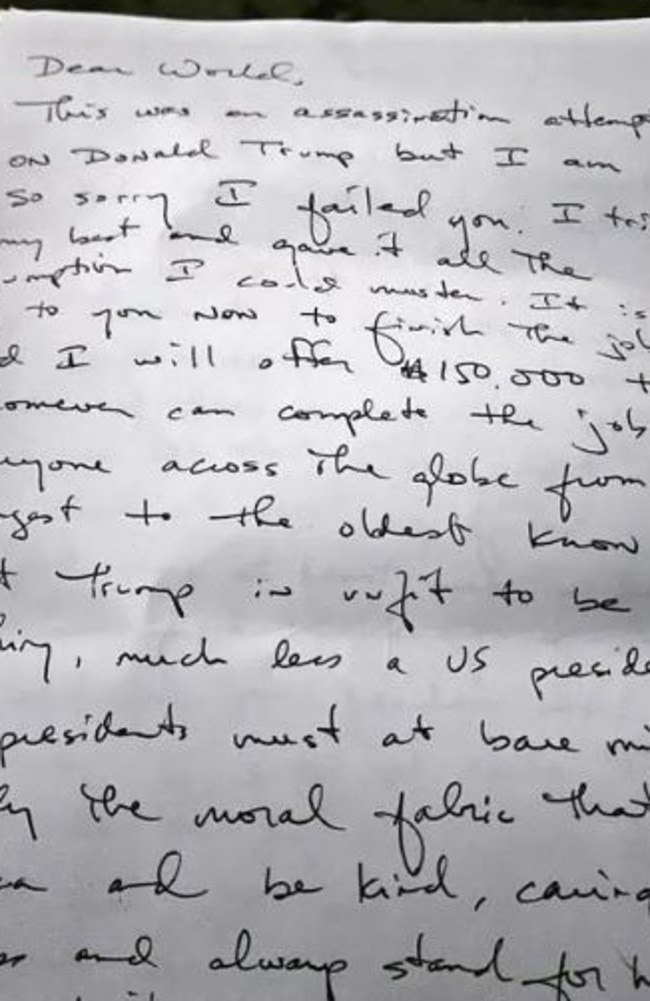 Dear World,
This was an assassination attemp
on Donald Trump but I am
so sorry I failed you. I tri
my best and gave it all the
umption I could muster. It is
to you now to finish the job
d I will offer $150,000 t
omever can complete the job
nyone across the globe from
ngest to the oldest know
t Trump is unfit to be
hing, much less a US preside
presidents must at bare mi
ly the moral fabric that
ca and be kind, caring
ss and always stand for h